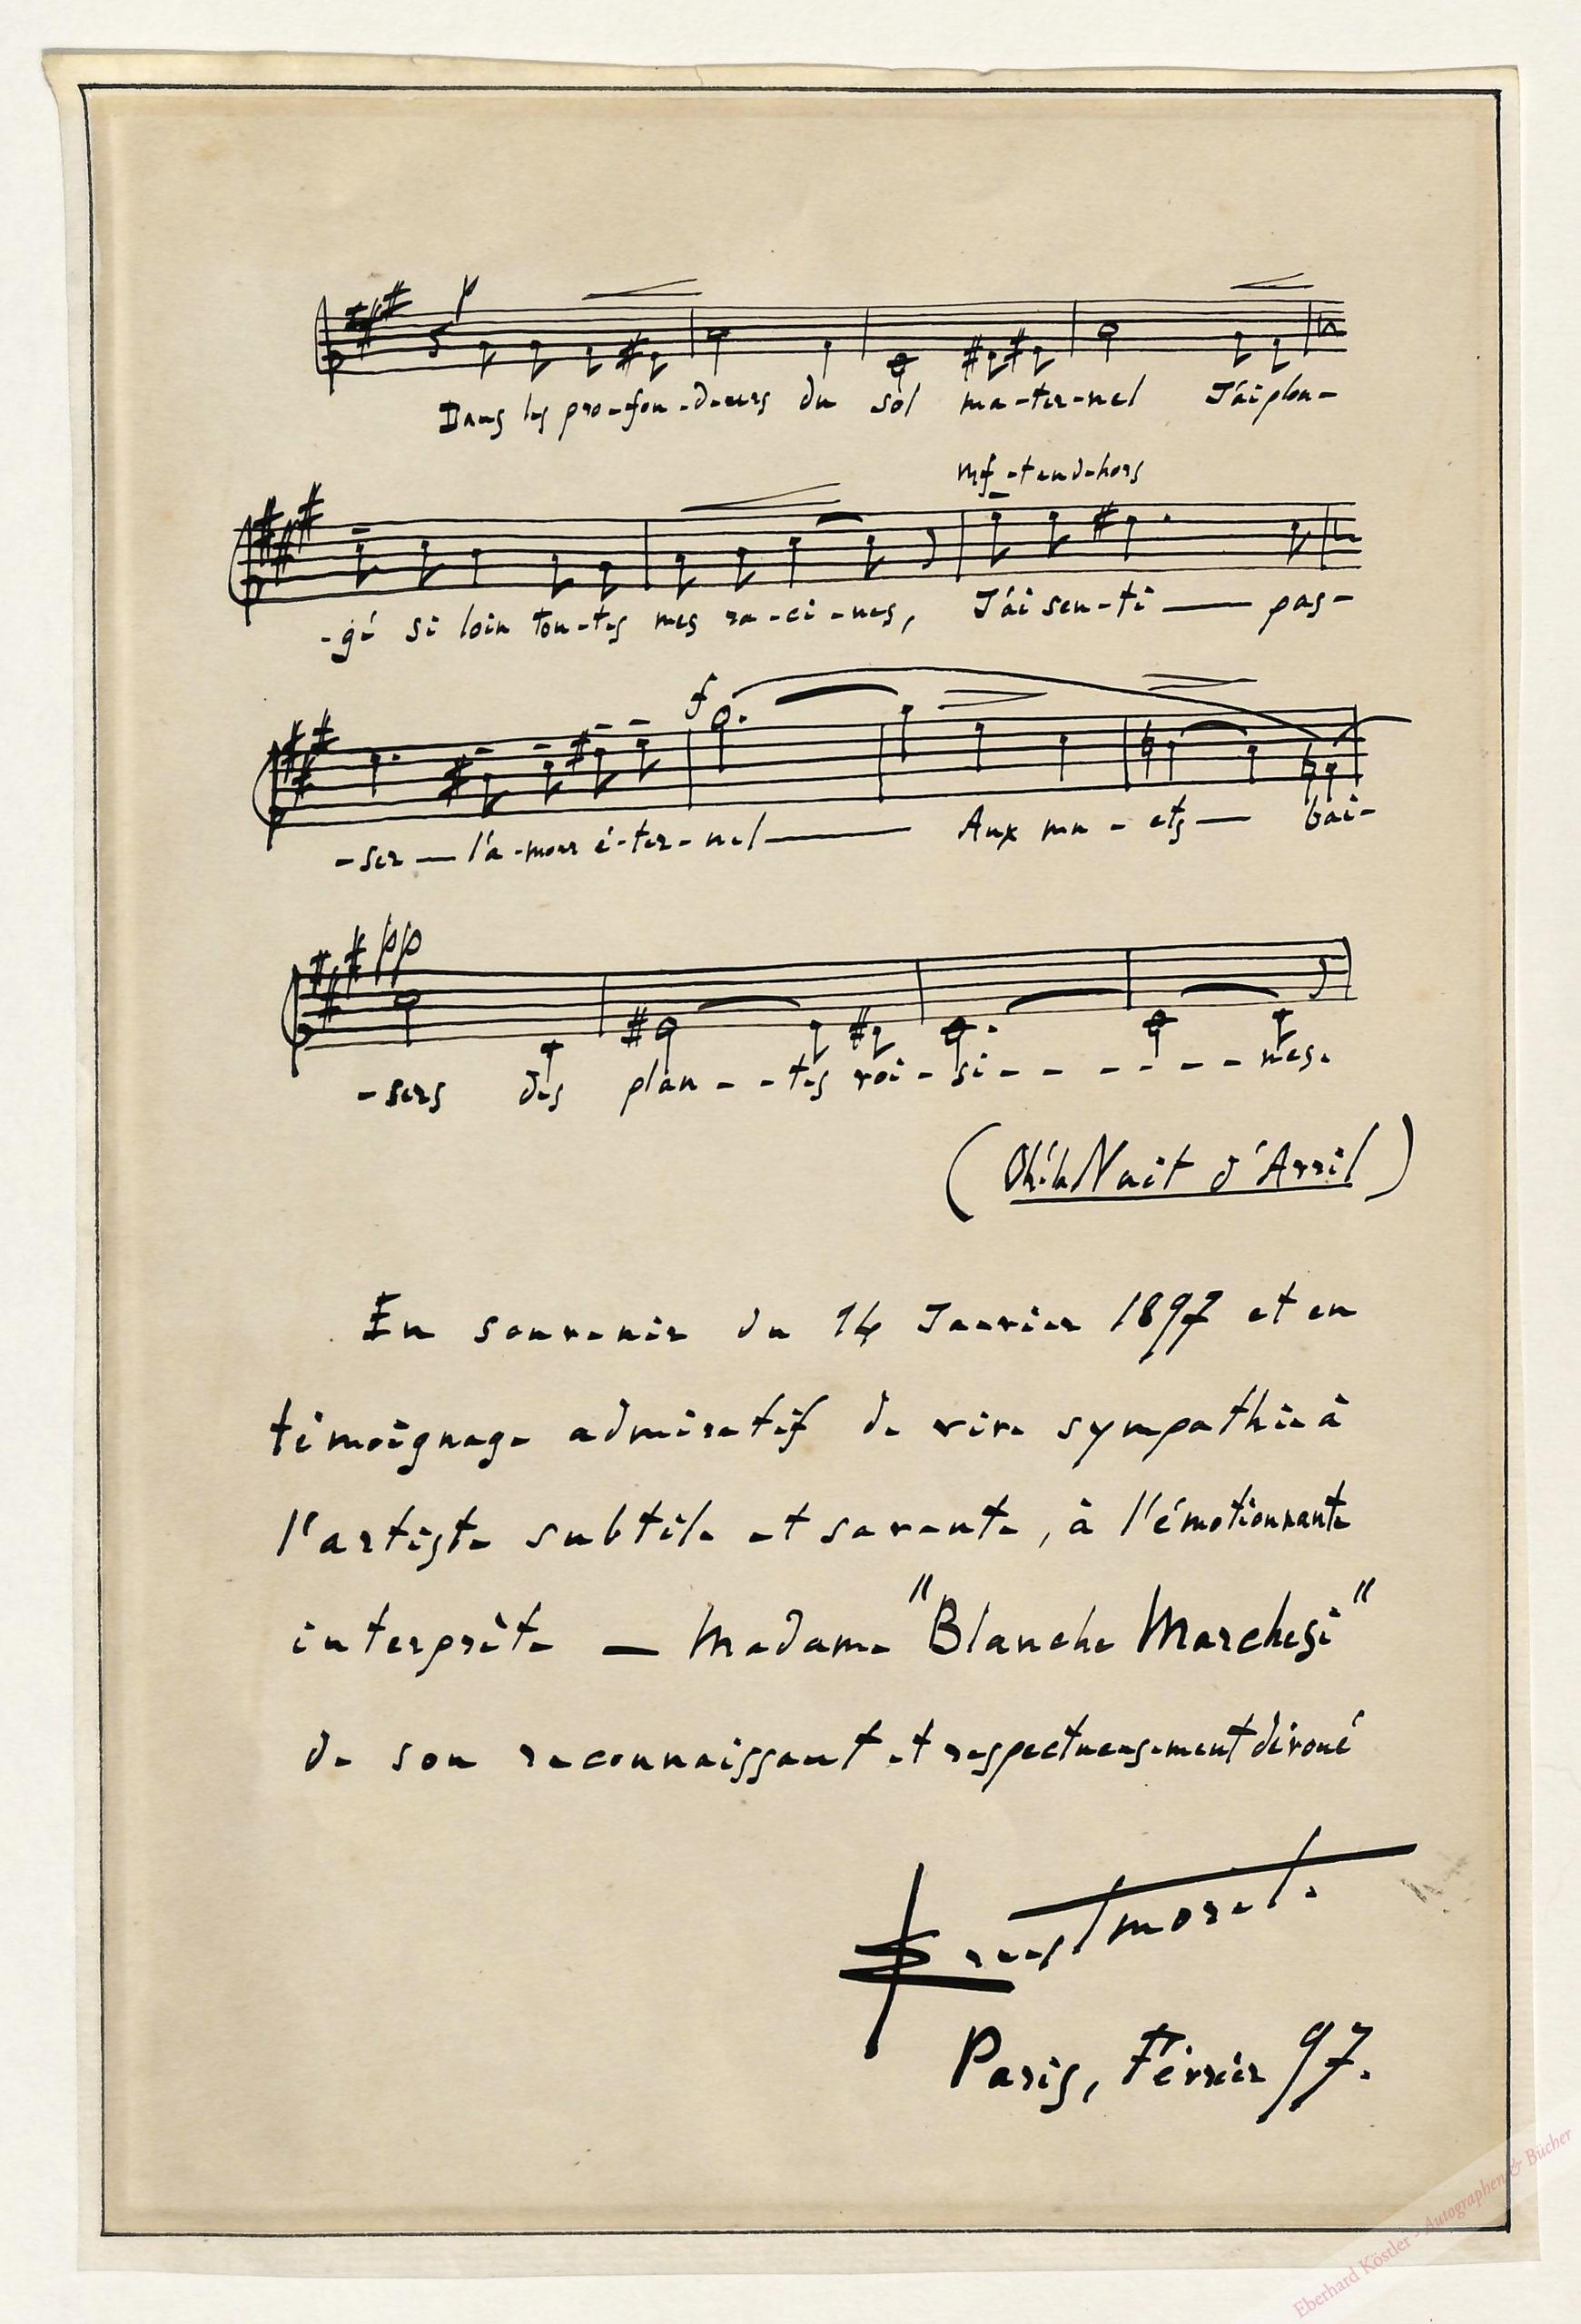 p
Dans les pro-fon-deurs du sol ma-ter-nel J'ai plon-
mf et en dehors
-gé si loin tou-tes mes ra-ci-nes, J'ai sen-ti — pas-
f
-ser — l'a-mour é-ter-nel — Aux mu-ets — bai-
pp
-sers des plan--tes voi-si------nes.
(Oh! la Nuit d'Avril)
En souvenir du 14 Janvier 1897 et en
témoignage admiratif de vive sympathie à
l'artiste subtile et savante, à l'émotionnante
interprète — Madame "Blanche Marchesi"
de son reconnaissant et respectueusement dévoué
Ernest Moret.
Paris, Février 97.
Eberhard Köstler - Autographen & Bücher